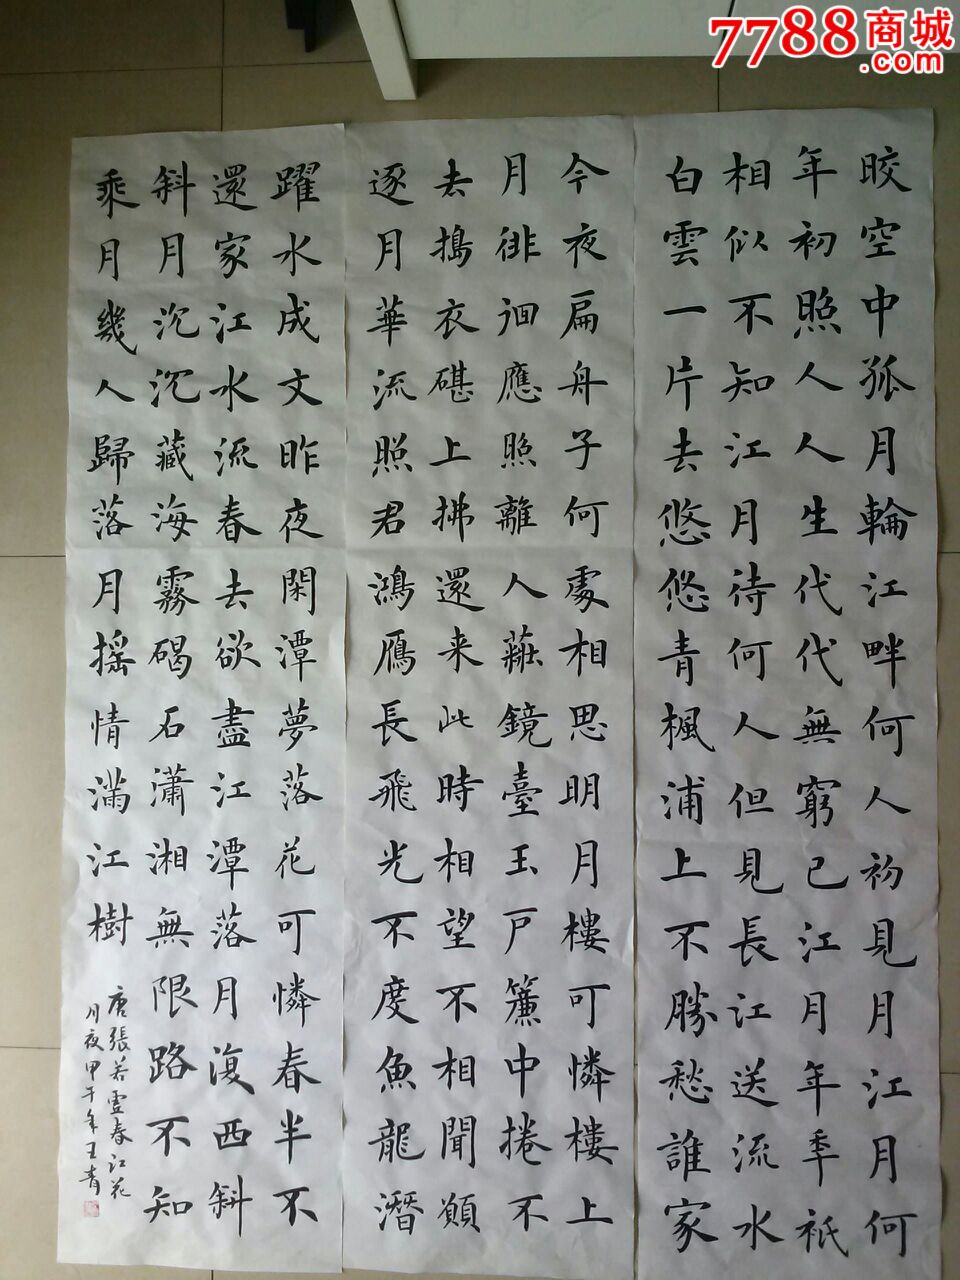 晈空中孤月輪江畔何人初見月江月何
年初照人人生代代無窮已江月年秊祇
相似不知江月待何人但見長江送流水
白雲一片去悠悠青楓浦上不勝愁誰家
今夜扁舟子何處相思明月樓可憐樓上
月徘徊應照離人糚鏡臺玉戶簾中捲不
去搗衣碪上拂還来此時相望不相聞願
逐月華流照君鴻鴈長飛光不度魚龍潛
躍水成文昨夜閑潭夢落花可憐春半不
還家江水流春去欲盡江潭落月復西斜
斜月沉沉藏海霧碣石瀟湘無限路不知
乘月幾人歸落月摇情滿江樹
唐張若虛春江花
月夜甲午年王青
7788商城
.com